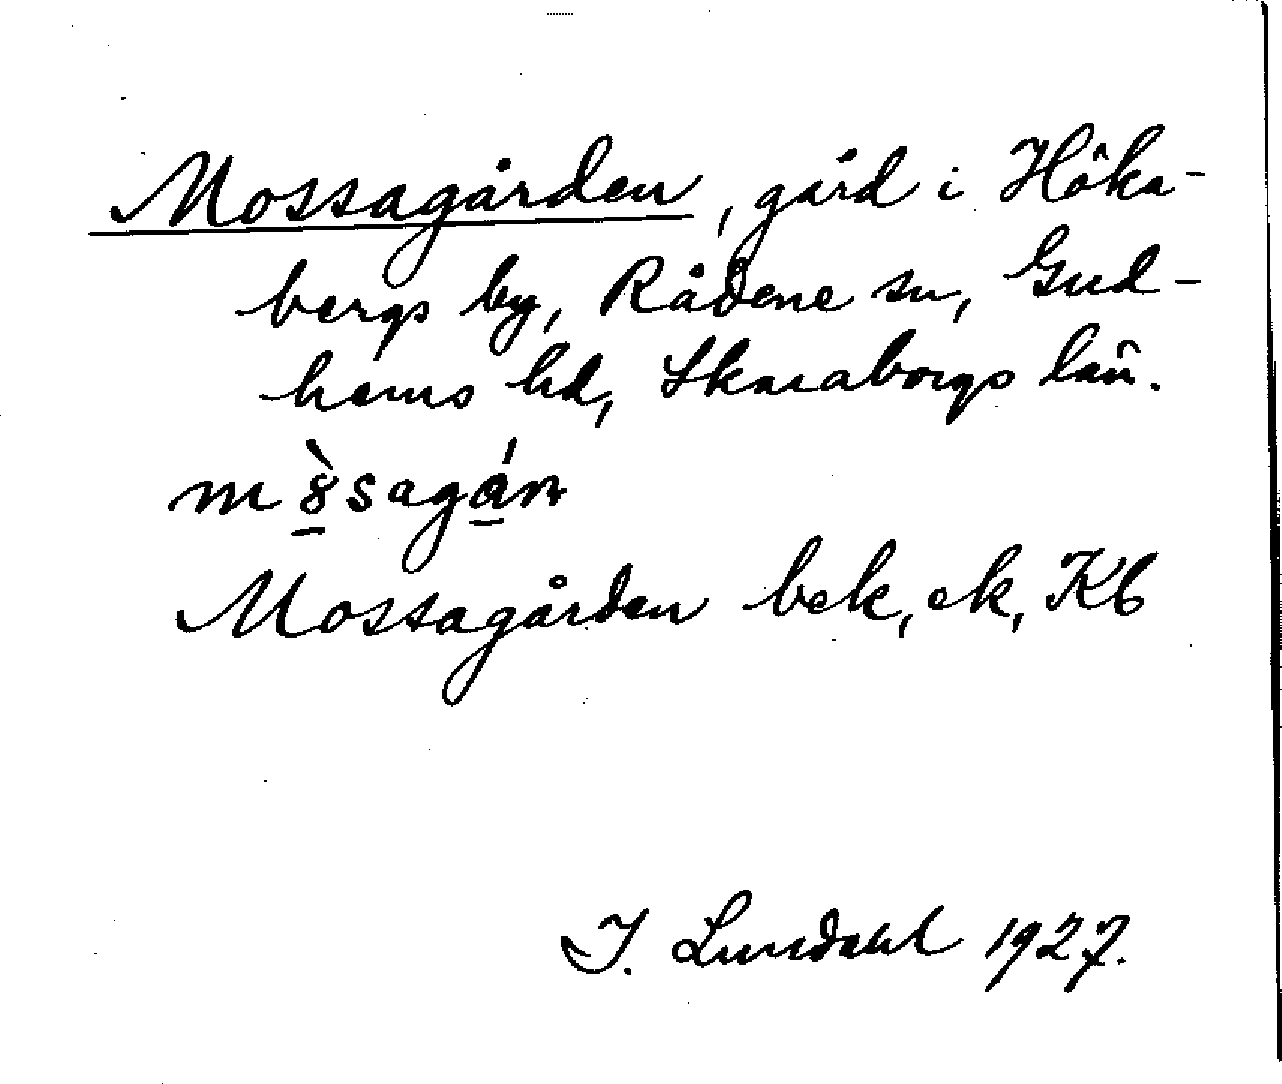 Mossagården, gård i Höka-
bergs by, Rådene sn, Gud-
hems hd, Skaraborgs län.
m8̠̀sagá̠n
Mossagården bek, ek, Kb
I. Lundahl 1927.